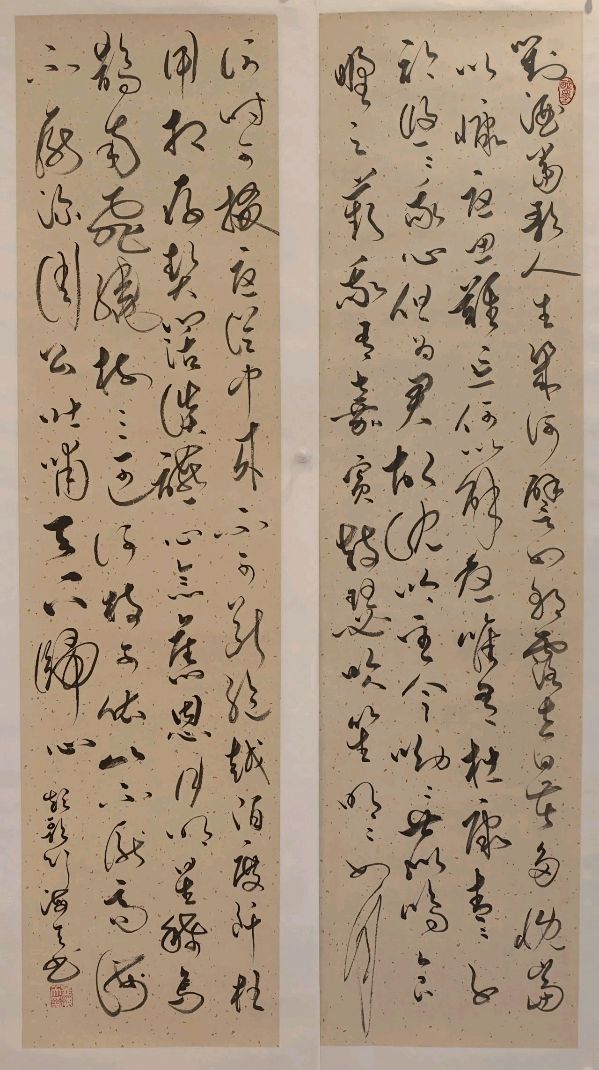 對酒當歌人生幾何譬如朝露去日苦多慨當
以慷憂思難忘何以解憂唯有杜康青々子
衿悠々我心但為君故沈吟至今呦々鹿鳴食
野之蘋我有嘉賓鼓瑟吹笙明々如月
何時可掇憂從中來不可斷絕越陌度阡枉
用相存契闊談讌心念舊恩月明星稀烏
鵲南飛繞樹三匝何枝可依山不厭高海
不厭深周公吐哺天下歸心
短歌行 海天書